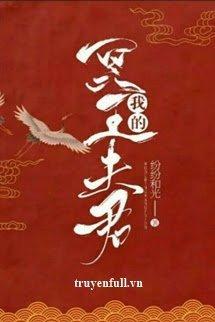 我的
冥王夫君
纷纷和光
著
truyenfull.vn